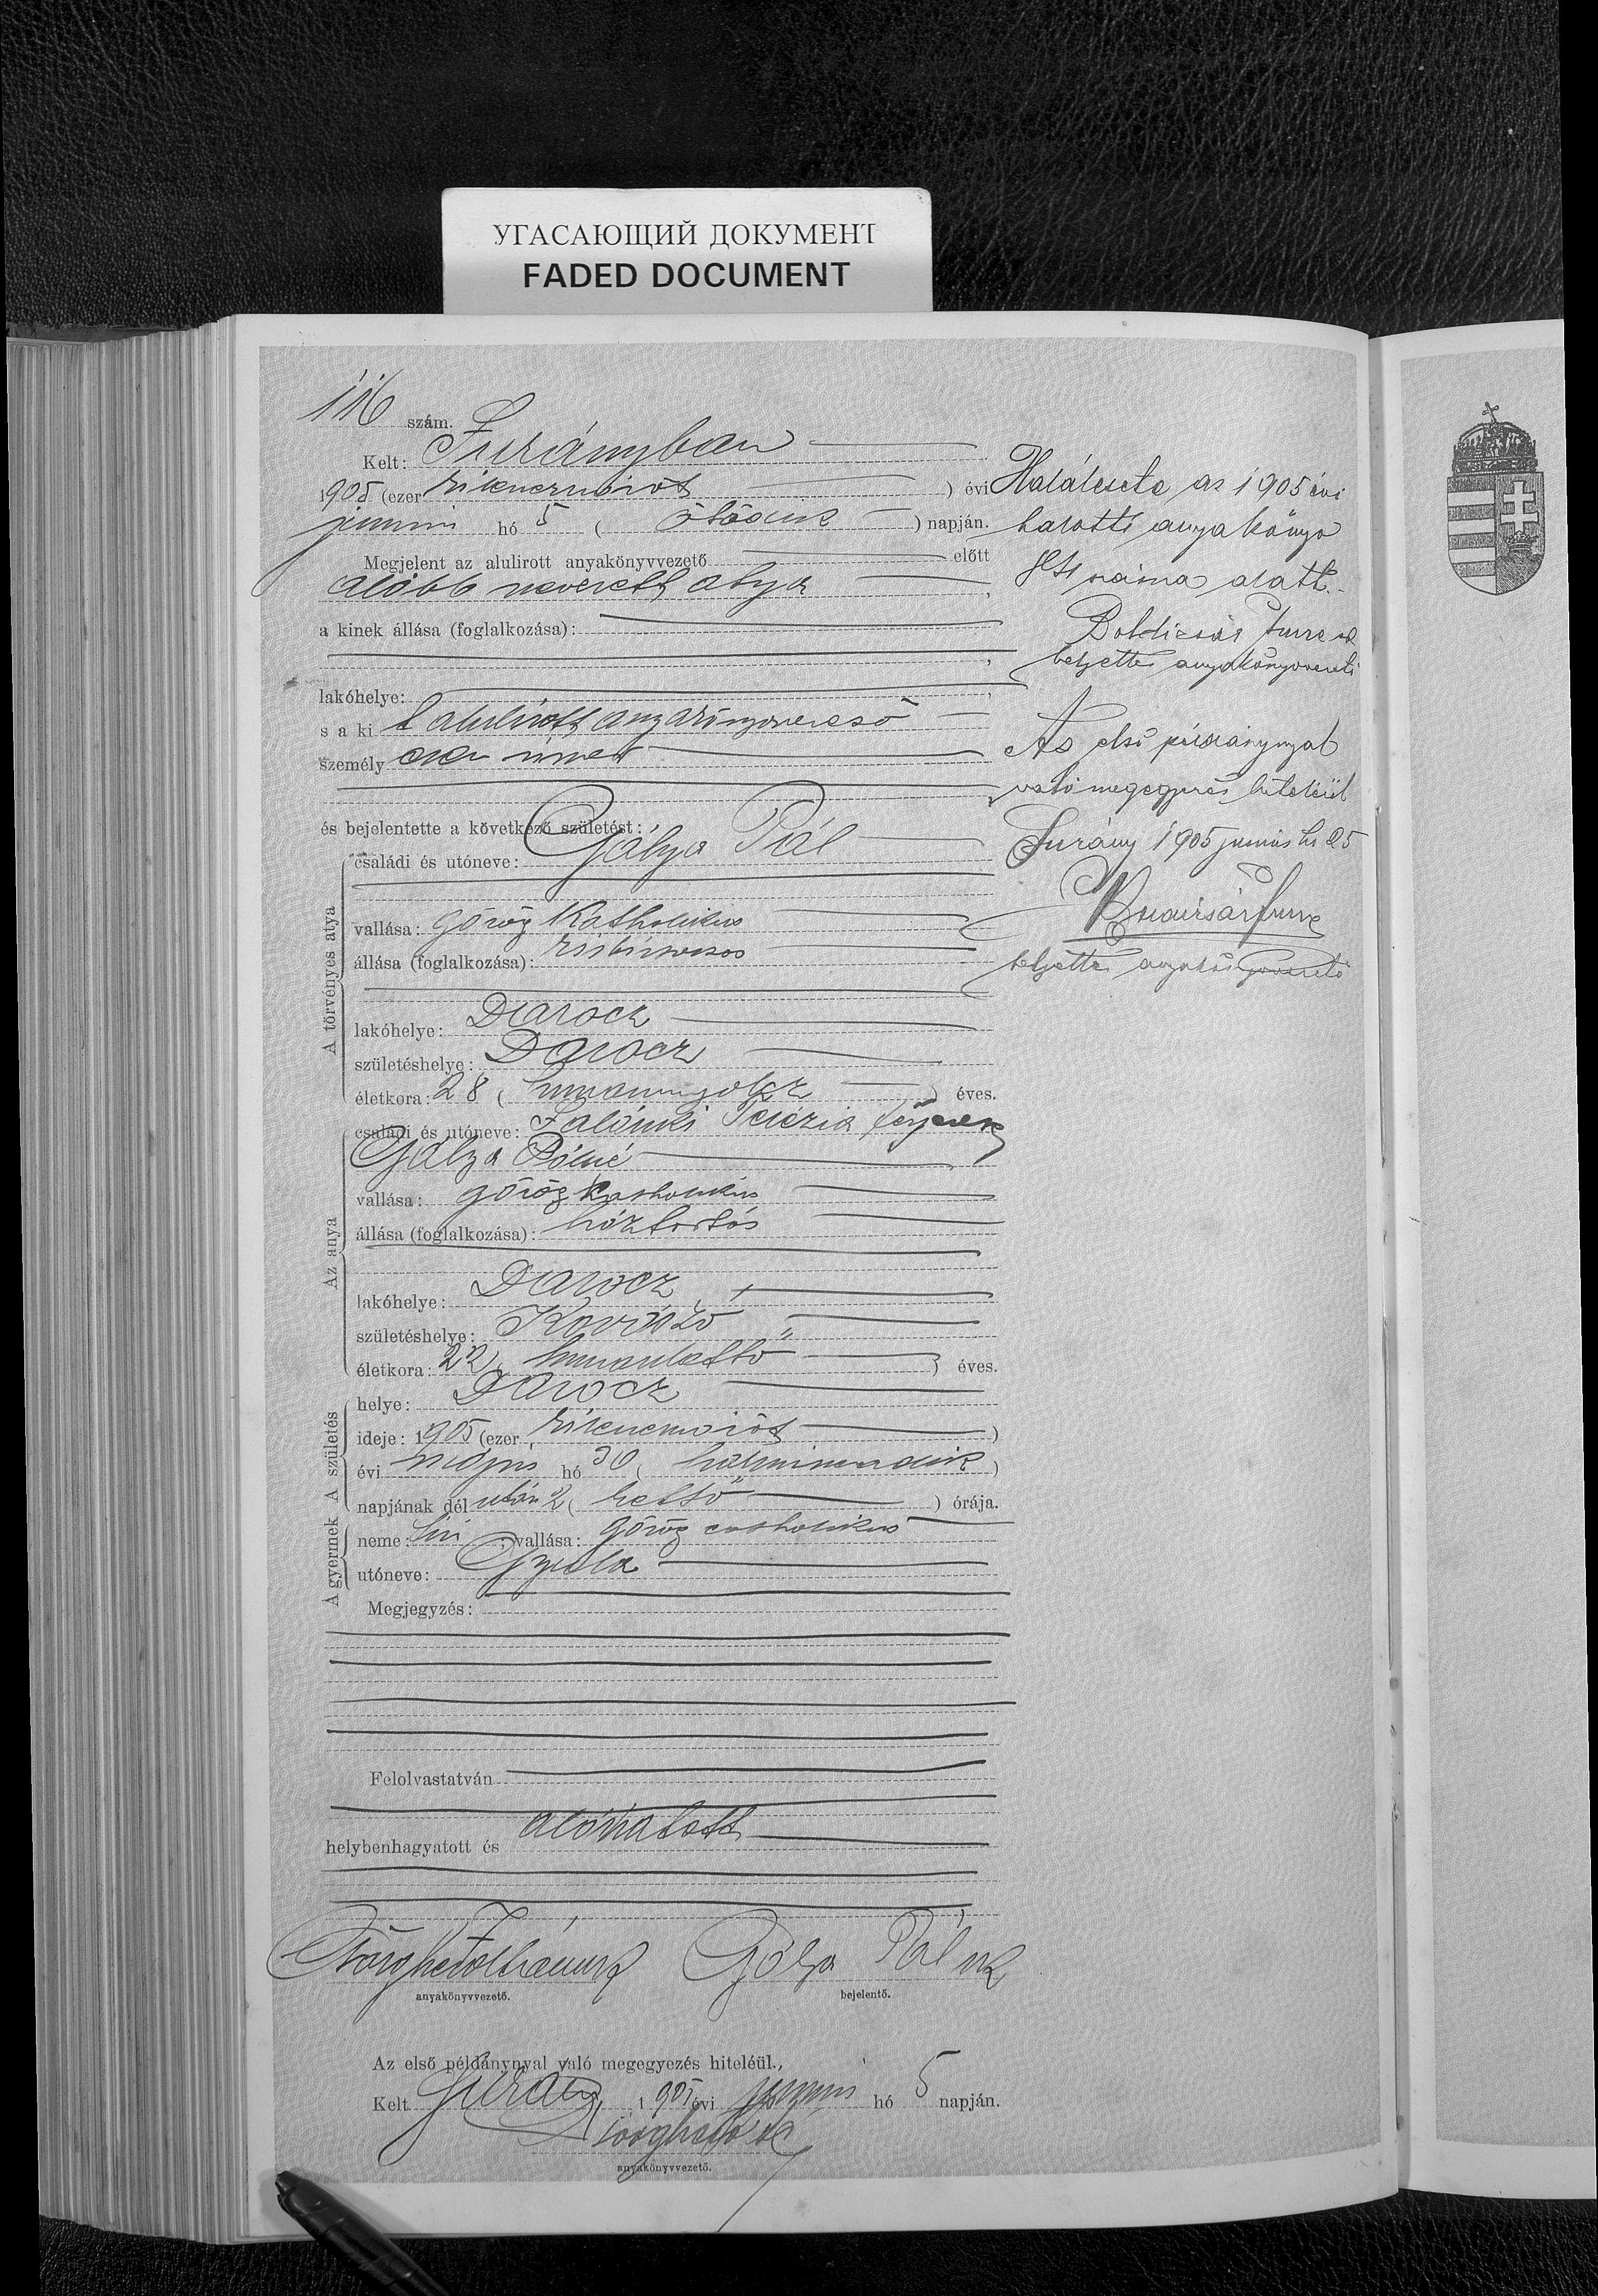 УГАСАЮЩИЙ ДОКУМЕНТ
FADED DOCUMENT
116 szám.
Kelt: Surányban
1905 (ezer kilenczszáz öt) évi
junius hó 5 (ötödik) napján.
Megjelent az alulirott anyakönyvvezető előtt
alább nevezett atya,
a kinek állása (foglalkozása):
lakóhelye:
s a ki alulirott anyakönyvvezető
személy
és bejelentette a következő születést:
A törvényes atya
családi és utóneve: Gálya Pál
vallása: görög katholikus
állása (foglalkozása):
lakóhelye: Darocz
születéshelye: Darocz
életkora: 28 (huszonnyolcz) éves.
Az anya
családi és utóneve: Terézia férjezett
Gálya Pálné
vallása: görög katholikus
állása (foglalkozása): háztartás
lakóhelye: Darocz
születéshelye:
életkora: 22 (huszonkettő) éves.
A születés
helye: Darocz
ideje: 1905 (ezer kilenczszáz öt)
évi május hó 30 (harminczadik)
napjának dél után 2 (kettő) órája.
A gyermek
neme: fiú; vallása: görög catholikus
utóneve: Gyula
Megjegyzés:
Felolvastatván
helybenhagyatott és aláiratott
Gálya Pál
anyakönyvvezető. bejelentő.
Az első példánynyal való megegyezés hiteléül.,
Kelt Surány, 1905 évi junius hó 5 napján.
anyakönyvvezető.
Halálesete az 1905 évi
halotti anyakönyv
száma alatt.
Boldizsár
helyettes anyakönyvvezető
Az első példánynyal
való megegyezés hiteléül
Surány 1905 junius hó 25
Boldizsár
helyettes anyakönyvvezető